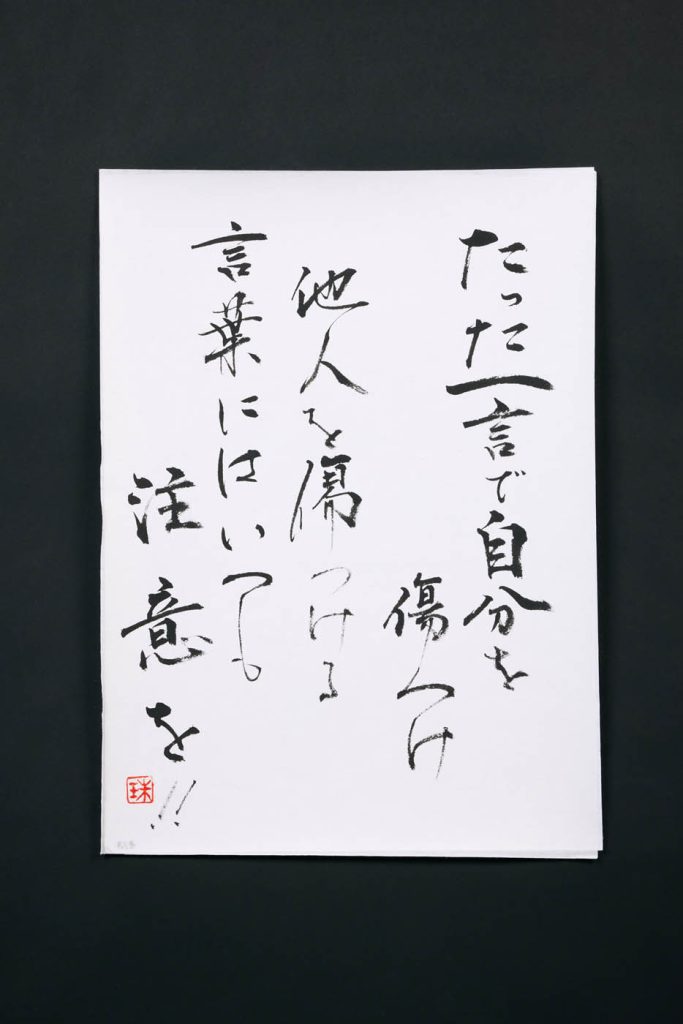 たった一言で自分を
傷つけ
他人を傷つける
言葉にはいつも
注意を!!
珠